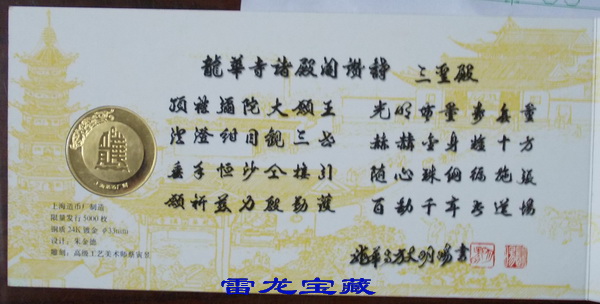 龍華寺諸殿閣讚 三聖殿
頂禮彌陀大願王
澄紺目觀三世
垂手恒沙仝接引
願祈慈力殷勤護
光明 量壽無量
赫赫金身 十方
隨心珠網 施張
百劫千年 道場
龍華方丈明暘書
上海造币厂制造
限量发行5000枚
铜质24K镀金 Φ33mm
设计：朱金德
雕刻：高级工艺美术师蔡寅里
雷龙宝藏